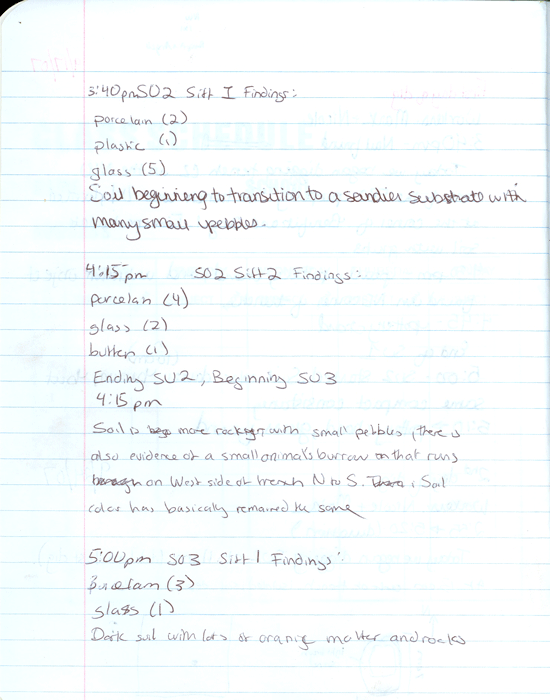 3:40pm SU2 Sift I Findings:
porcelain (2)
plastic (1)
glass (5)
Soil beginning to transition to a sandier substrate with
many small pebbles.
4:15pm SU2 Sift 2 Findings:
porcelan (4)
glass (2)
button (1)
Ending SU2, Beginning SU3
4:15 pm
Soil is more rocky with small pebbles, there is
also evidence of a small animal's burrow that runs
on West side of trench N to S. Soil
color has basically remained the same
5:00pm SU3 Sift 1 Findings:
(3)
glass (1)
Dark soil with lots of organic matter and rocks